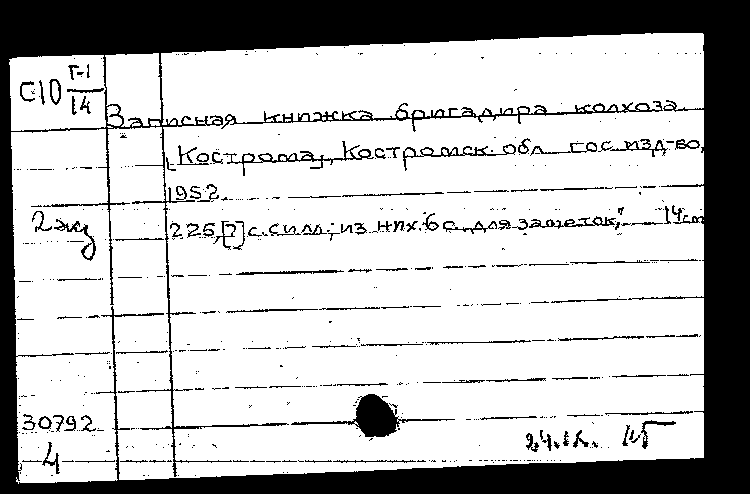 С10 Г-1/14
Записная книжка бригадира колхоза.
[Кострома], Костромск. обл. гос. изд-во,
1952.
2 экз
225,[7] с. с илл.; из них 6 с. „для заметок“. 14 см
30792
4